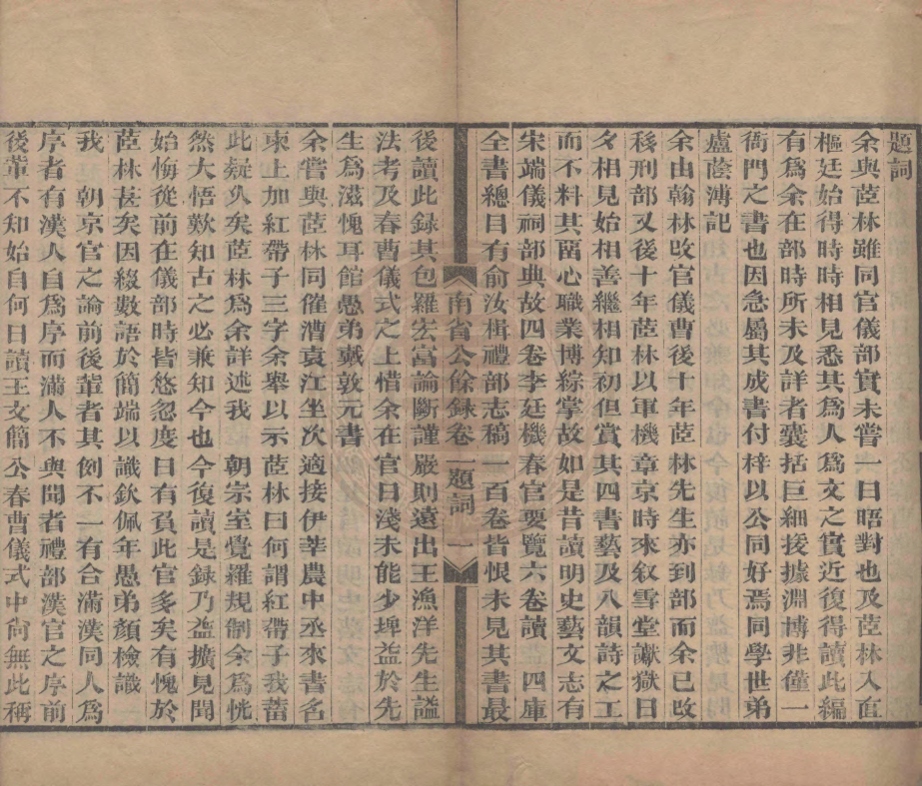 題詞
余與茝林雖同官儀部實未嘗一日晤對也及茝林入直
樞廷始得時時相見悉其爲人爲文之實近復得讀此編
有爲余在部時所未及詳者囊括巨細援據淵博非僅一
衙門之書也因急屬其成書付梓以公同好焉同學世弟
盧蔭溥記
余由翰林改官儀曹後十年茝林先生亦到部而余已改
移刑部又後十年茝林以軍機章京時來叙雪堂讞獄日
夕相見始相善繼相知初但賞其四書藝及八韻詩之工
而不料其畱心職業博綜掌故如是昔讀明史藝文志有
宋端儀祠部典故四卷李廷機春官要覽六卷讀　四庫
全書總目有俞汝楫禮部志稿一百卷皆恨未見其書最
南省公餘錄卷一題詞　一
後讀此録其包羅宏富論斷謹嚴則遠出王漁洋先生諡
法考及春曹儀式之上惜余在官日淺未能少埤益於先
生爲滋愧耳館愚弟戴敦元書
余嘗與茝林同催漕袁江坐次適接伊莘農中丞來書名
柬上加紅帶子三字余舉以示茝林曰何謂紅帶子我蓄
此疑久矣茝林爲余詳述我　朝宗室覺羅規制余爲恍
然大悟歎知古之必兼知今也今復讀是録乃益擴見聞
始悔從前在儀部時皆悠忽度日有負此官多矣有愧於
茝林甚矣因綴數語於簡端以識欽佩年愚弟顏檢識
我　朝京官之論前後輩者其例不一有合滿漢同人爲
序者有漢人自爲序而滿人不與聞者禮部漢官之序前
後輩不知始自何日讀王文簡公春曹儀式中尙無此稱